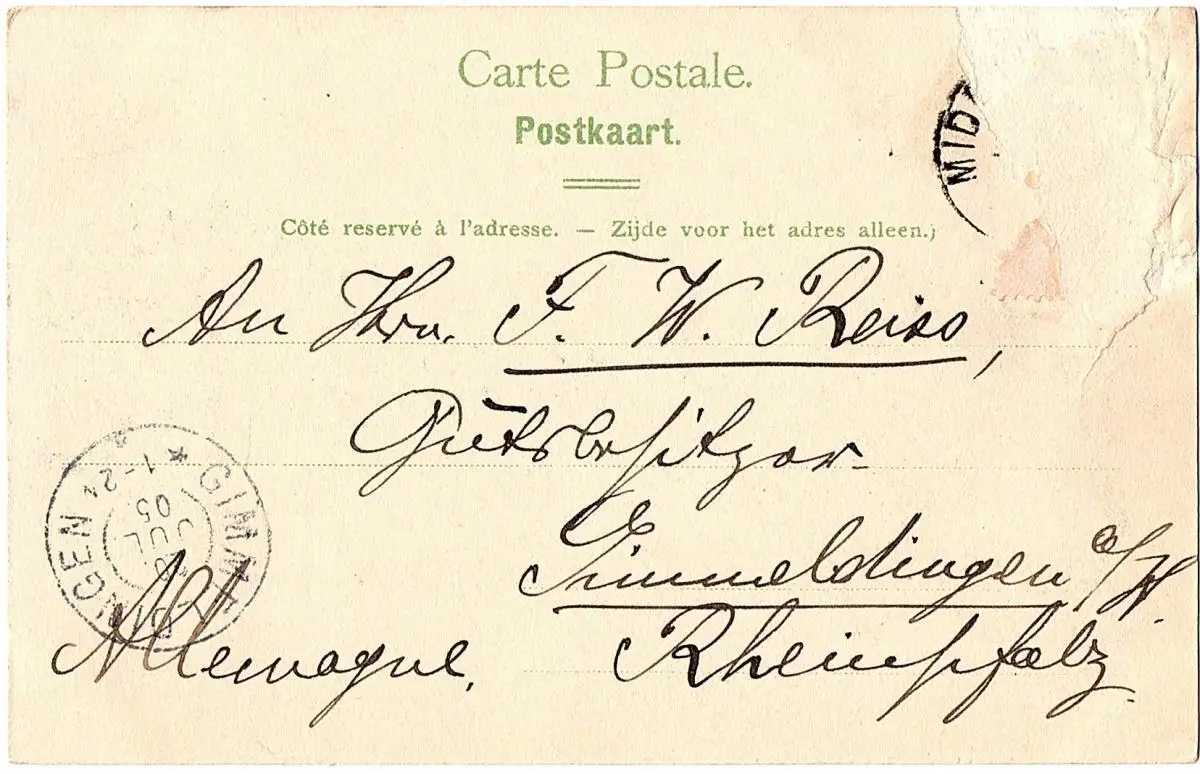 Carte Postale.
Postkaart.
Côté reservé à l'adresse. — Zijde voor het adres alleen.)
MID
An Hrn. F. W. Reiss,
Gutsbesitzer
Gimmeldingen a/H.
Rheinpfalz.
Allemagne.
GIMMELDINGEN
JUL
05
1-2N